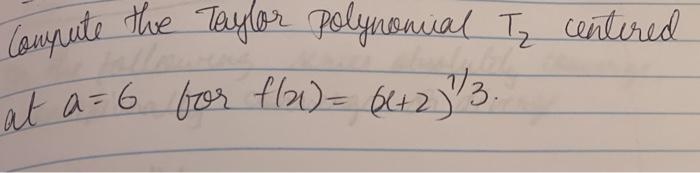 Compute the Taylor polynomial T₂ centered
at a=6 for f(x)= (x+2)^1/3.